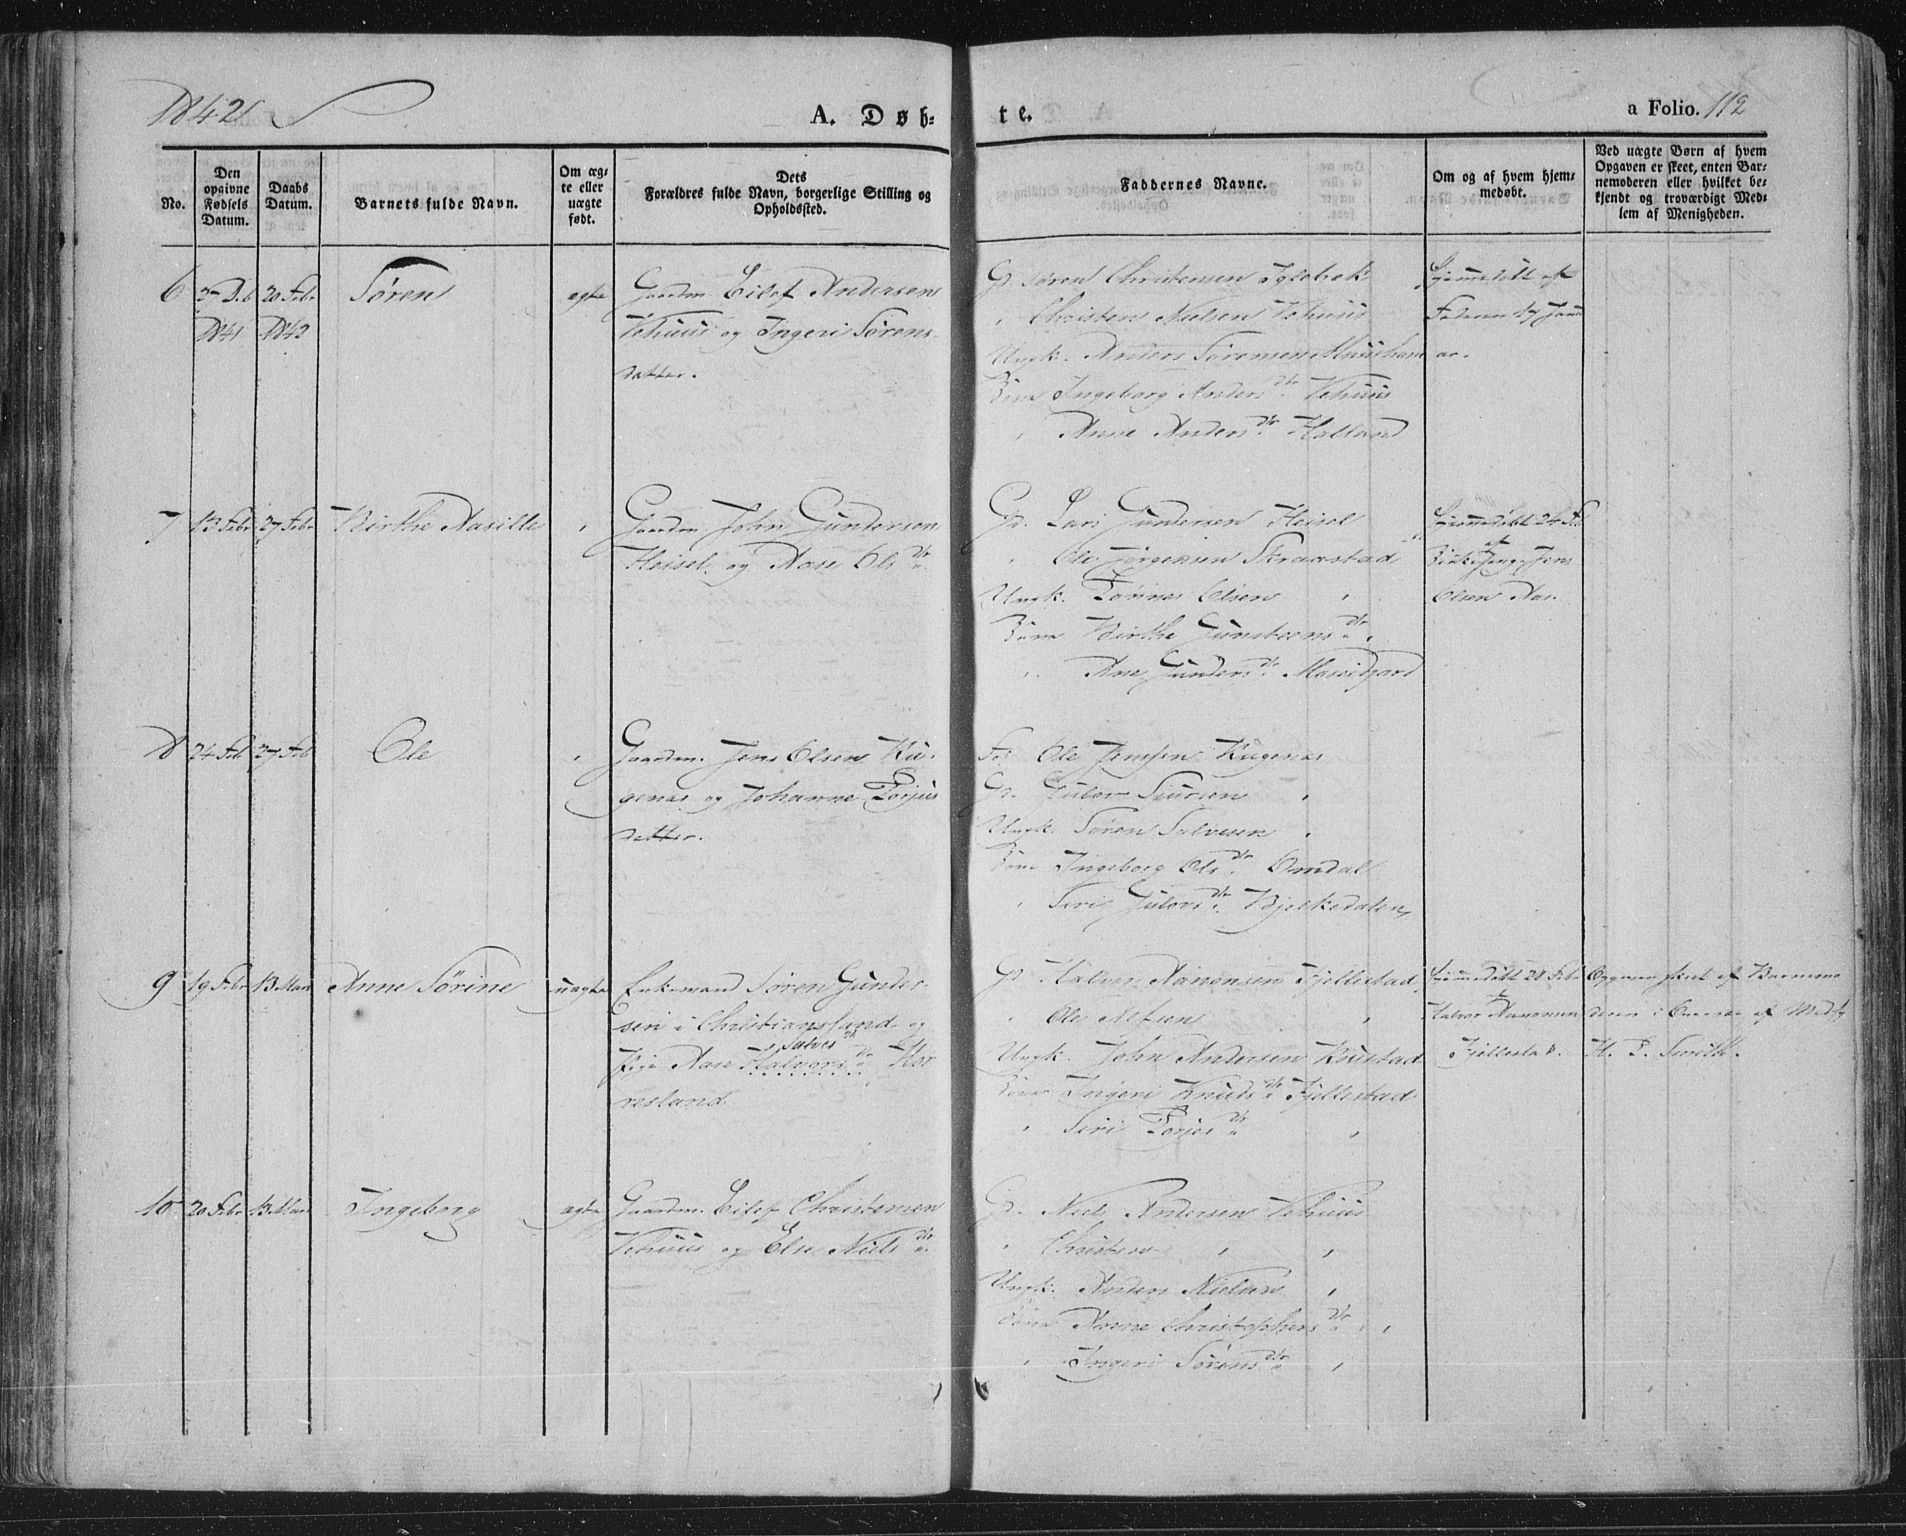 1842
A. Døb-
te.
a Folio. 112
No.
Den
opgivne
Fødsels
Datum.
Daabs
Datum.
Barnets fulde Navn.
Om æg-
te eller
uægte
født.
Dets
Forældres fulde Navn, borgerlige Stilling og
Opholdssted.
Faddernes Navne.
Om og af hvem hjem-
medøbt.
Ved uægte Børn af hvem
Opgaven er skeet, enten Bar-
nemoderen eller hvilket be-
kjendt og troværdigt Med-
lem af Menigheden.
6
27 Deb
1841
20 Febr
1842
Søren
ægte
Gaardm. Eilef Andersen
Vehuus og Ingeri Sørens-
datter.
Gr. Søren Christensen
Christen Nielsen Vehuus
Ungk. Anders Sørensen
Ingeborg Anders dtr. Vehuus
Anne Anders dtr. Haaland
Hjemmedøbt af
Faderen
7
13 Febr
27 Febr
Birthe Aasille
Gaardm John Gundersen
Heisel og Aase Ols dtr
Gr. Lars Gundersen Heisel
Ole Jørgensen Skraastad
Ungk. Tørres Olsen
Birthe Gunders dtr
Aase Gunders dtr
Hjemmedøbt 24 Feb
af
Jens
Olsen Aas.
8
24 Feb
27 Feb
Ole
Gaardm. Jens Olsen Ku-
genæs og Johanne Torjus
datter.
Ole Jensen Kugenæs
Gr. Gulov Sjursen
Ungk. Søren Salvesen
Ingeborg Ols dtr. Omdal
Siri Gulovs dtr. Bjelkedalen
9
19 Febr
13 Mars
Anne Sørine
uægte
Enkemand Søren Gunder-
sen i Christiansand og
Salves dtr
Pige Aase Halvors dtr Hor
resland
Gr. Halvor Aanonsen Fjellestad
Ole
Ungk. John Andersen
Ingeri Knuds dtr Fjellestad
Siri Torjes dtr
Hjemmedøbt 20 Febr
af
Halvor Aanonsen
Fjellestad.
Opgaven skeet af Barnemo
deren i Overvær af
H. T. Smith.
10
20 Febr
13 Mars
Ingeborg
ægte
Gaardm. Eilef Christensen
Vehuus og Else Niels dtr
Gr. Niels Andersen Vehuus
Christen
Ungk. Anders Nielsen
Anne Christophers dtr
Ingeri Sørens dtr